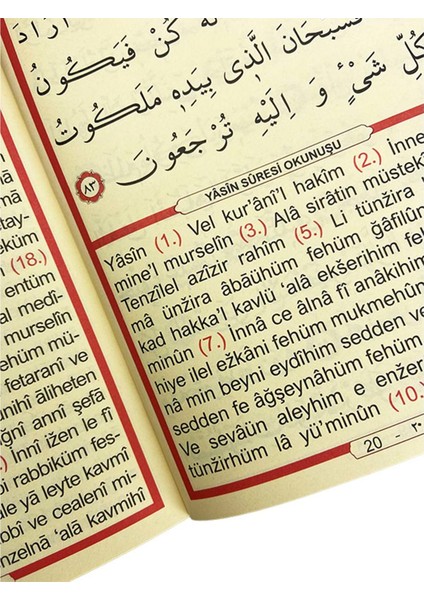 اَرَادَ
لَهُ كُنْ فَيَكُونُ
فَسُبْحَانَ الَّذ۪ى بِيَدِه۪ مَلَكُوتُ
كُلِّ شَىْءٍ وَ اِلَيْهِ تُرْجَعُونَ
٨٣
YÂSİN SÛRESİ OKUNUŞU
Yâsîn (1.) Vel kur’ânî’l hakîm (2.) İnne
mine’l murselîn (3.) Alâ sirâtin müstekî
Tenzîlel azîzir rahîm (5.) Li tünžira
mâ ünžira âbâühüm fehüm ğâfilûn
kad hakka’l kavlü ‘alâ ekšerihim fehü
minûn (7.) İnnâ ce âlnâ fî anâkihim
hiye ilel ežkâni fehüm mukmehûn
nâ min beyni eydîhim sedden ve
sedden fe âğşeynâhüm fehüm
Ve sevâün aleyhim e enžer
tünžirhüm lâ yü’minûn (10.)
20 - ٢٠
tay-
eküm
(18.)
entüm
al medî-
murselîn
ehüm mü-
fetaranî ve
unihî âliheten
ğnî annî şefâ
.) İnnî ižen le fî
i rabbiküm fes-
ale yâ leyte kavmî
bbî ve cealenî mi-
nzelnâ ‘alâ kavmihî